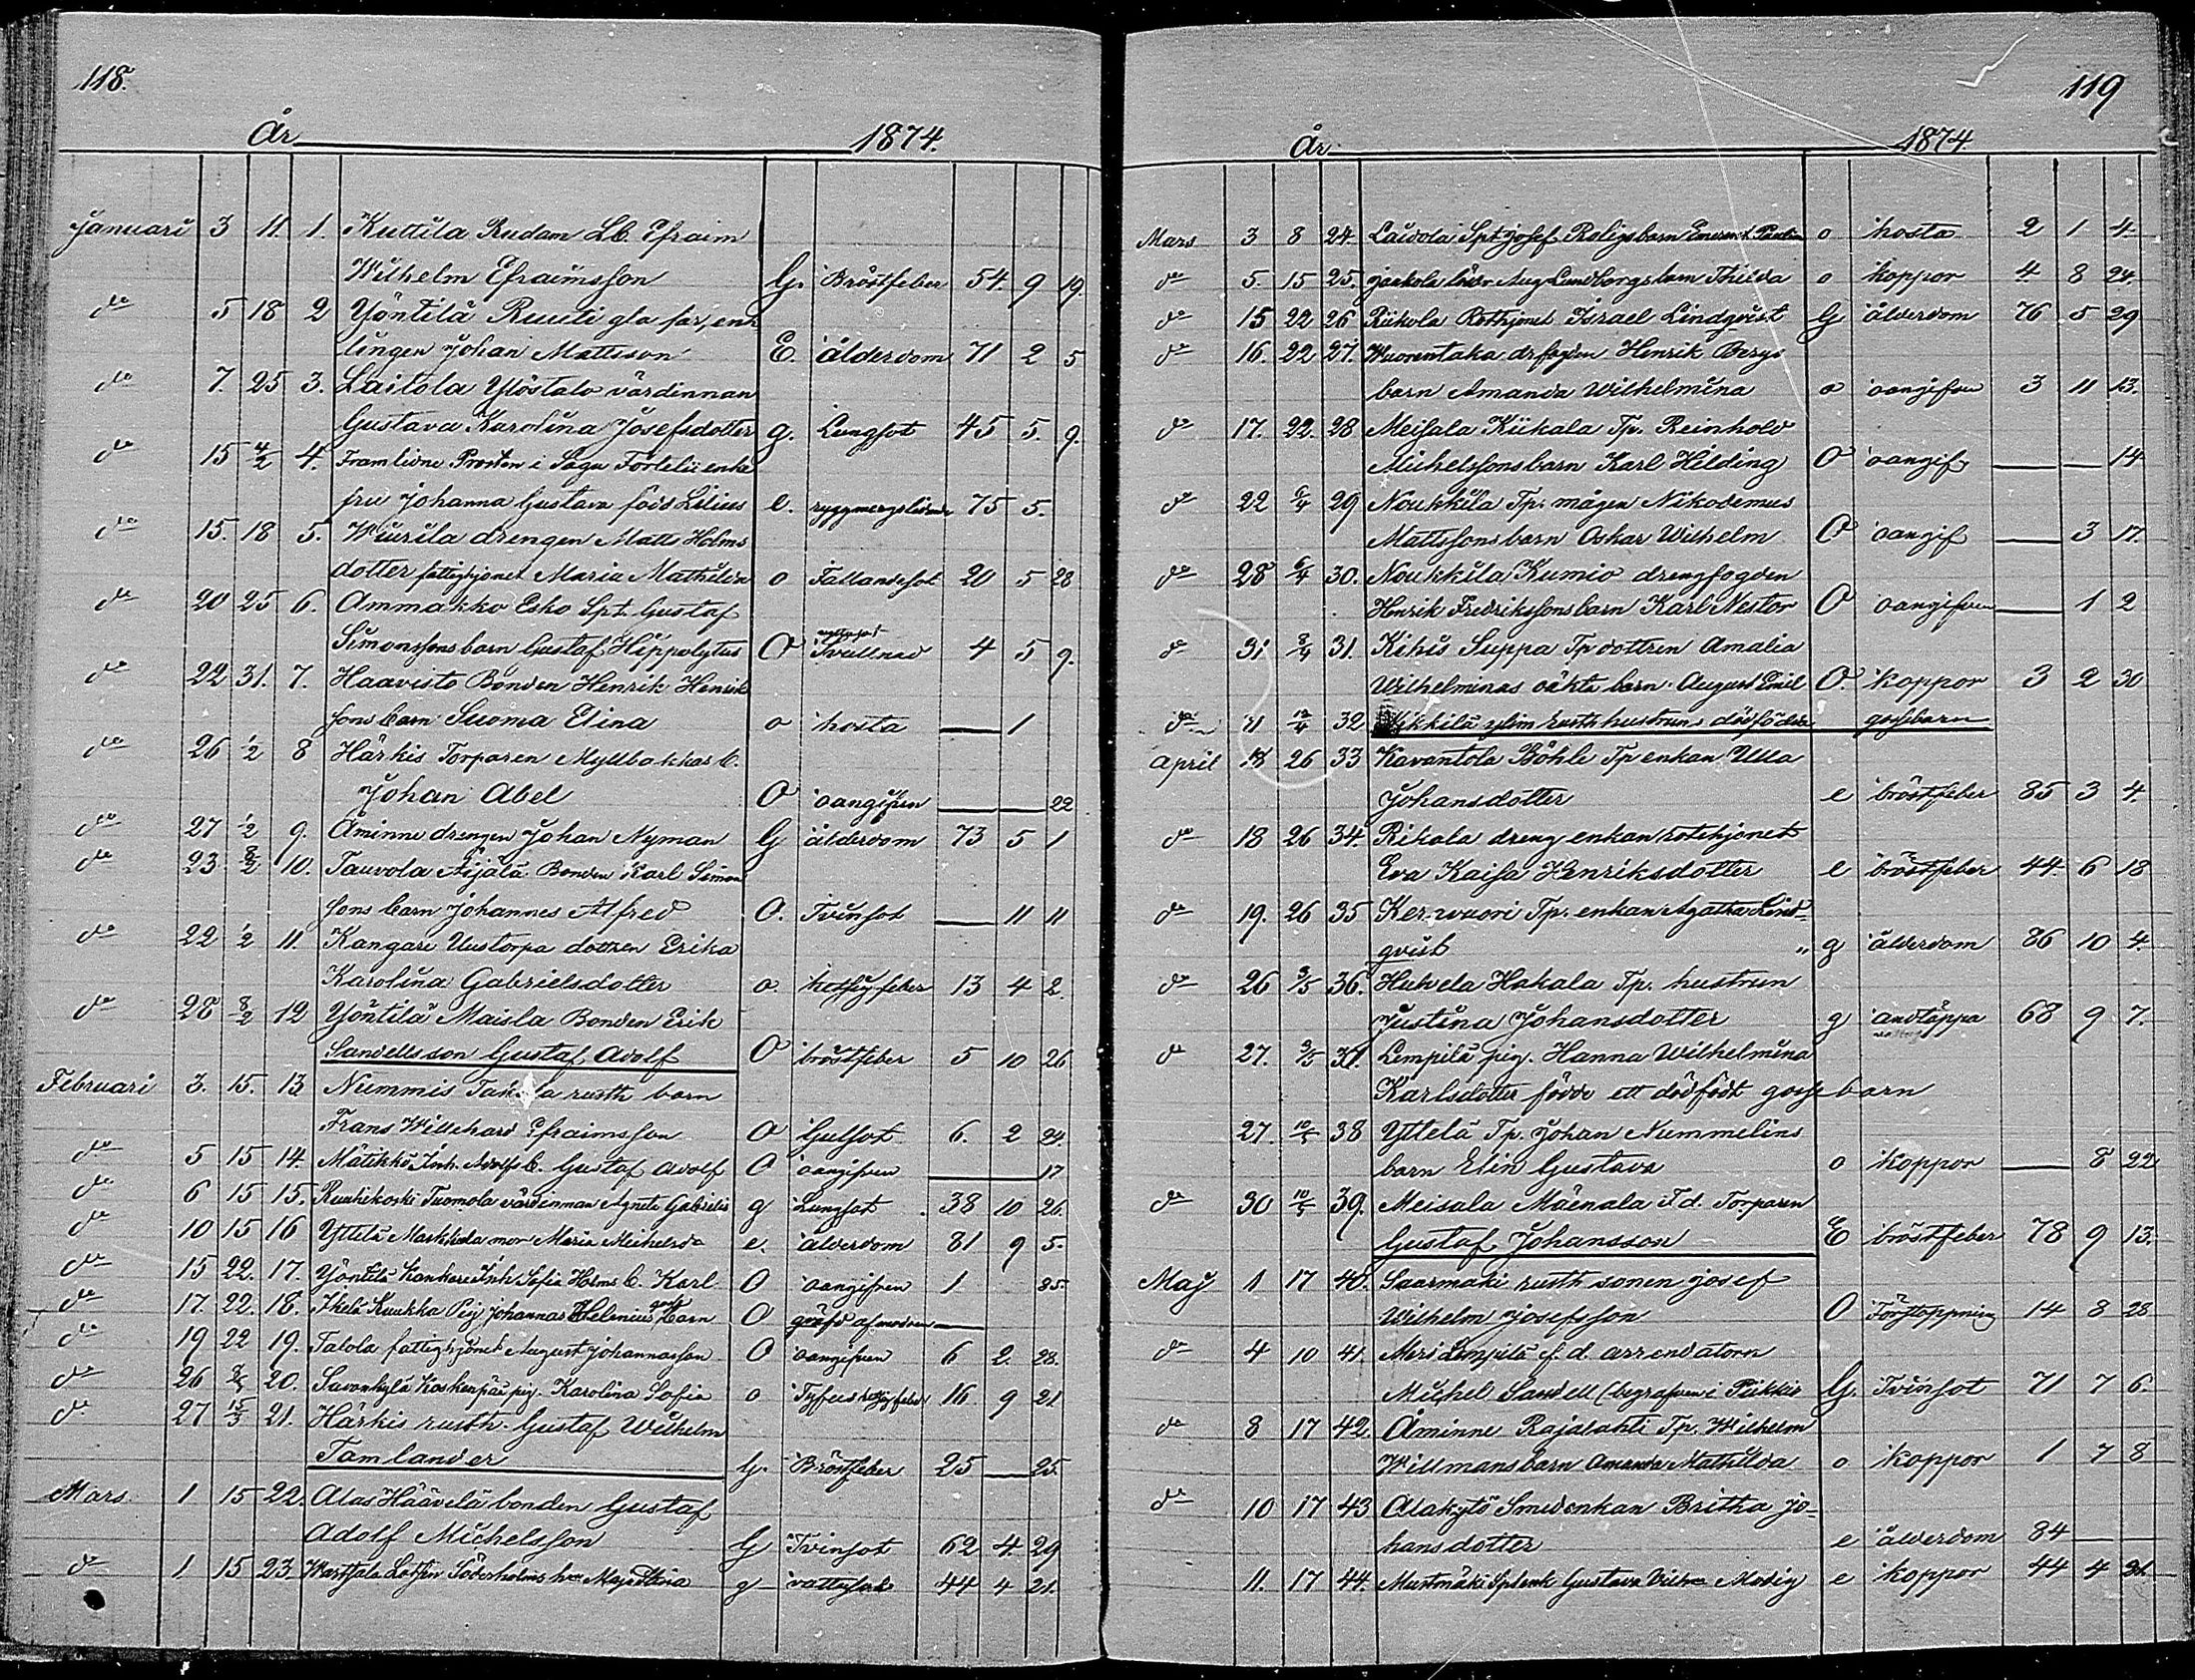 118.
År 1874.
Januari 3 11. 1. Kuttila Rudam Lb. Efraim
Wilhelm Efraimsson G. Bröstfeber 54. 9 19.
do 5 18 2 Yöntilä Ruuti gla far, enk
lingen Johan Mattsson E. ålderdom 71 2 5
do 7. 25 3. Laitola Ylöstalo värdinnan
Gustava Karolina Josefsdotter g. Lungsot 45 5. 9.
do 15 4/2 4. Framlidne Prosten i Sagu Förtelii enke
fru Johanna Gustava född Lilius e. ryggmergslidande 75 5.
do 15. 18 5. Wiurila drengen Matts Holms
dotter fattighjonet Maria Mathilda o Fallandesot 20 5 28
do 20 25 6. Ammakko Esko Spt. Gustaf
Simonssons barn Gustaf Hippolytus O Svullnad 4 5 9.
do 22 31. 7. Haavisto Bonden Henrik Henriks
sons barn Suoma Elina o hosta — 1
do 26 1/2 8 Härkis Torparen Myllbackas b.
Johan Abel O oangifven — — 22
do 27 1/2 9. Åminne drengen Johan Nyman G ålderdom 73 5 1
do 23. 8/2 10. Tauvola Äijälä Bonden Karl Simons
sons barn Johannes Alfred O. Tvinsot — 11 11
do 22 1/2 11. Kangare Uustorpa dottren Erika
Karolina Gabrielsdotter o. hetsig feber 13 4 2.
do 28 8/2 12 Yöntilä Maisla Bonden Erik
Sandells son Gustaf Adolf O bröstfeber 5 10 26
Februari 3. 15. 13 Nummis rusth barn
Frans Willehard Efraimsson O Gulsot 6. 2 24.
do 5 15 14. Mätikkö Inh. Adolfs b. Gustaf Adolf O oangifven — 17
do 6 15 15. Ruuhikoski Tuomola värdinnan Agneta Gabriels g Lungsot 38 10 26.
do 10 15 16 Yttelä Markkula mor Maria Michelsd. e. ålderdom 81 9 5.
do 15 22. 17. Yöntilä Kankare Inh Sofia Holms b. Karl O oangifven 1 25.
do 17. 22. 18. Ihelä Kuukka Pig. Johannas Helenius barn O qväfd af modren —
do 19 22 19. Talola fattighjonet August Johannasson O oangifven 6 2. 28.
do 26 20. Savonkylä Koskenpää pig. Karolina Sofia o Tyfus hetsig feber 16 9 21
do 27 15/3 21. Härkis rusth. Gustaf Wilhelm
Tamlander G. Bröstfeber 25 — 25.
Mars 1 15 22. Alas Häävelä bonden Gustaf
Adolf Michelsson G Tvinsot 62 4. 29
do 1 15 23. Wartsala Lotsen Söderholms h:u Maja Stina g vattusot 44 4 21.
119
År 1874
Mars 3 8 24. Laidola Spt Josef Roligs barn o hosta 2 1 4
do 5. 15 25. Aug Lundborgs barn Thilda o koppor 4. 8 24.
do 15 22 26 Riikola Rothjonet Israel Lindqvist G ålderdom 76 5 29
do 16. 22 27. Wuorentaka drfogden Henrik Bergs
barn Amanda Wilhelmina o oangifven 3 11 13.
do 17. 22. 28 Meisala Kiikala Tp. Reinhold
Michelssons barn Karl Hilding O oangif. — — 14
do 22 6/4 29 Noukkila Tp. mågen Nikodemus
Mattssons barn Oskar Wilhelm O oangif — 3 17.
do 28 6/4 30. Noukkila Kumio drengfogden
Henrik Fredrikssons barn Karl Nestor O oangifven — 1 2
do 31 8/4 31. Kihis Suppa Tp dottren Amalia
Wilhelminas oäkta barn August Emil O. koppor 3 2 30
do 11 12/4 32 rusth hustruns dödfödda gossebarn
April 18 26 33 Kavantola Böhle Tp enkan Ulla
Johansdotter e bröstfeber 85 3 4.
do 18 26 34. Rikala dreng enkan rotehjonet
Eva Kaisa Henriksdotter e bröstfeber 44. 6 18
do 19. 26 35 Kerwuori Tp. enkan Agatha Lind-
qvist " g ålderdom 86 10 4.
do 26 3/5 36. Huhela Hakala Tp. hustrun
Justina Johansdotter g andtäppa 68 9 7.
do 27. 3/5 37. Lempilä pig. Hanna Wilhelmina
Karlsdotter födde ett dödfödt gossebarn
27. 10/5 38 Yttelä Tp. Johan Nummelins
barn Elin Gustava o koppor — 8 22
do 30 10/5 39. Meisala Mäenala F.d. Torparen
Gustaf Johansson E bröstfeber 78 9 13.
Maj 1 17 40. Saarmäki rusth sonen Josef
Wilhelm Josefsson O Förstoppning 14 8 28
do 4 10 41. Meri Lempilä f.d. arrendatorn
Michel Sandell (begrafven i Piikkis G. Tvinsot 71 7 6.
do 8 17 42. Åminne Rajalahti Tp. Wilhelm
Willmans barn Amanda Mathilda o koppor 1 7 8
do 10 17 43 Alakytö Smedenkan Britha Jo-
hansdotter e ålderdom 84 —
11. 17 44. Mustmäki Sptenk Gustava Modig e koppor 44 4 21.